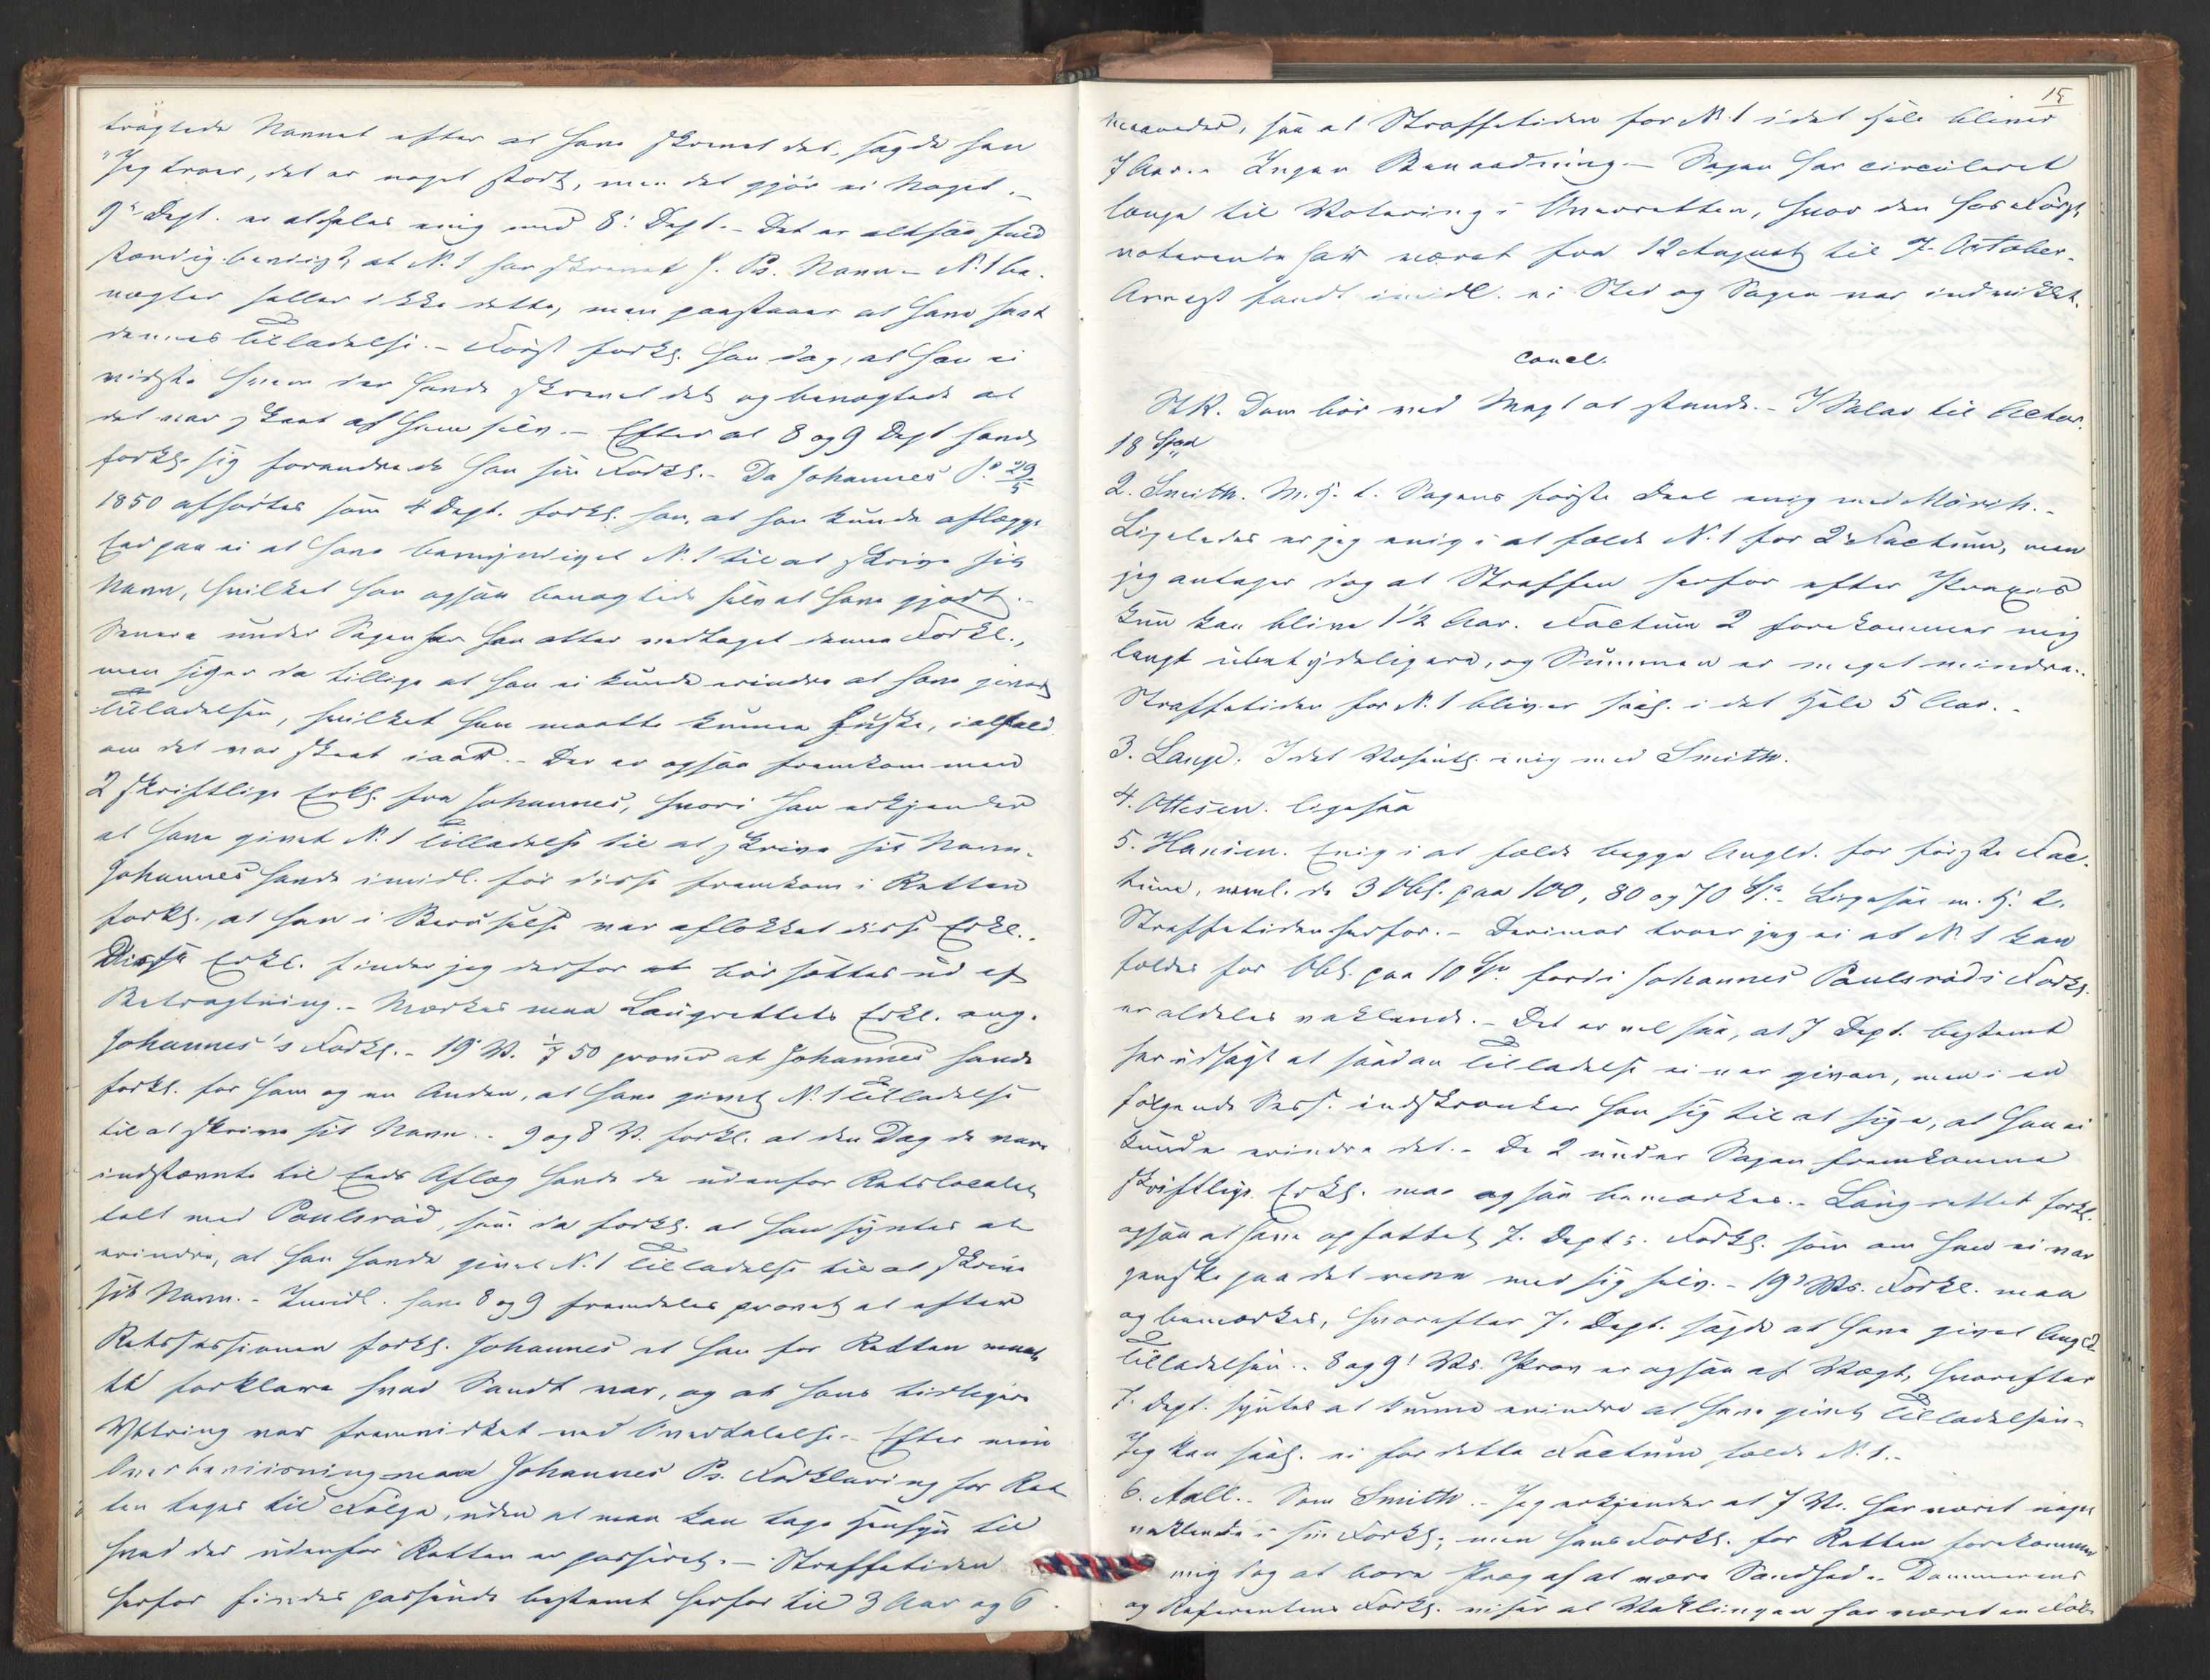 tragtede Navnet efter at have skrevet det, sagde han
"Jeg troer, det er noget stort, men det gjør ei Noget.-
9de Dept. er aldeles enig med 8: Dept.- Det er altsaa fuld
stændig beviist, at N. 1 har skrevet J. Ps. Navn.- N. 1 be-
nægter heller ikke dette, men paastaaer at have havt
dennes Tilladelse.- Først forkl. han dog, at han ei
vidste hvem der havde skrevet det og benægtede at
det var skeet af ham selv.- Efter at 8 og 9 Dept havde
forkl. sig forandrede han sin Forkl.- Da Johannes P. 29/5
1850 afhørtes som 4 Dept. forkl. han, at han kunde aflægge
Eed paa ei at have bemyndiget N. 1 til at skrive sit
Navn, hvilket han ogsaa benægtede selv at have gjort.-
Senere under Sagen har han atter vedtaget denne Forkl.,
men siger da tillige at han ei kunde erindre at have givet
Tilladelsen, hvilket han maatte kunne huske, ialfald
om det var skeet iaar.- Der er ogsaa fremkommen
2 skriftlige Erkl. fra Johannes, hvori han erkjender
at have givet N. 1 Tilladelse til at skrive sit Navn.
Johannes havde imidl. før disse fremkom i Retten
forkl., at han i Beruselse var aflokket disse Erkl..
Disse Erkl. finder jeg derfor at bør sættes ud af
Betragtning.- Mærkes maa Laugrettets Erkl. ang.
Johannes's Forkl.- 19 V. 1/7 50 prover at Johannes havde
forkl. for ham og en Anden, at have givet N. 1 Tilladelse
til at skrive sit Navn.- 9 og 8 V. forkl. at den Dag de vare
indstævnte til Eeds Aflæg havde de udenfor Retslocalet
talt med Paulsrød, som da forkl. at han syntes at
erindre, at han havde givet N. 1 Tilladelse til at skrive
sit Navn.- Imidl. have 8 og 9 fremdeles provet at efter
Retssessionen forkl. Johannes at han for Retten maat
te forklare hvad Sandt var, og at hans tidligere
Yttring var fremvirket ved Overtalelse.- Efter min
Overbeviisning maa Johannes Ps. Forklaring for Ret
ten tages til Følge, uden at man kan tage Hensyn til
hvad der udenfor Retten er passeret.- Straffetiden
herfor findes passende bestemt herfor til 3 Aar og 6
15
Maaneder, saa at Straffetiden for N. 1 i det Hele bliver
7 Aar.- Ingen Benaadning.- Sagen har circuleret
længe til Votering i Overretten, hvor den hos Første
voterende har været fra 12 August til 7. October.
Arrest fandt imidl. ei Sted og Sagen var indviklet.
concl.
StR. Dom bør ved Magt at stande.- I Salar til Actor
18 Spd
2. Smith. M. H. t. Sagens første Deel enig med Mørch.-
Ligeledes er jeg enig i at fælde N. 1 for 2de Factum, men
jeg antager dog at Straffen herfor efter Praxis
kun kan blive 1½ Aar. Factum 2 forekommer mig
langt ubetydeligere, og Summen er meget mindre.
Straffetiden for N. 1 bliver saal. i det Hele 5 Aar.-
3. Lange. I det Væsentl. enig med Smith.
4. Ottesen. ligesaa
5. Hansen. Enig i at fælde begge Angld. for første Fac-
tum, neml. de 3 Obl. paa 100, 80 og 70 Spd.- Ligesaa m. H. t.
Straffetiden herfor.- Derimod troer jeg ei at N. 1 kan
fældes for Obl. paa 10 Spd fordi Johannes Paulsrøds Forkl.
er aldeles vaklende.- Det er vel saa, at 7 Dept. bestemt
har udsagt at saadan Tilladelse ei var given, men i en
følgende Sess. indskrænker han sig til at sige, at han ei
kunde erindre det.- De 2 under Sagen fremkomne
skriftlige Erkl. maa ogsaa bemærkes.- Laugrettet forkl.
ogsaa at have opfattet 7. Depts. Forkl. som om han ei var
ganske paa det rene med sig selv.- 19de Vs. Forkl. maa
og bemærkes, hvorefter 7. Dept. sagde at have givet Angld
Tilladelsen.- 8 og 9! Vs. Prov er ogsaa af Vægt, hvorefter
7. Dept. syntes at kunne erindre at have givet Tilladelsen.-
Jeg kan saal. ei for dette Factum fælde N. 1.-
6. Aall.- Som Smith.- Jeg erkjender at 7 V. har været noget
vaklende i sin Forkl., men hans Forkl. for Retten forekommer
mig dog at bære Præg af at være Sandhed.- Dommerens
og Referentens Forkl. viser at Vaklingen har været en Føl-